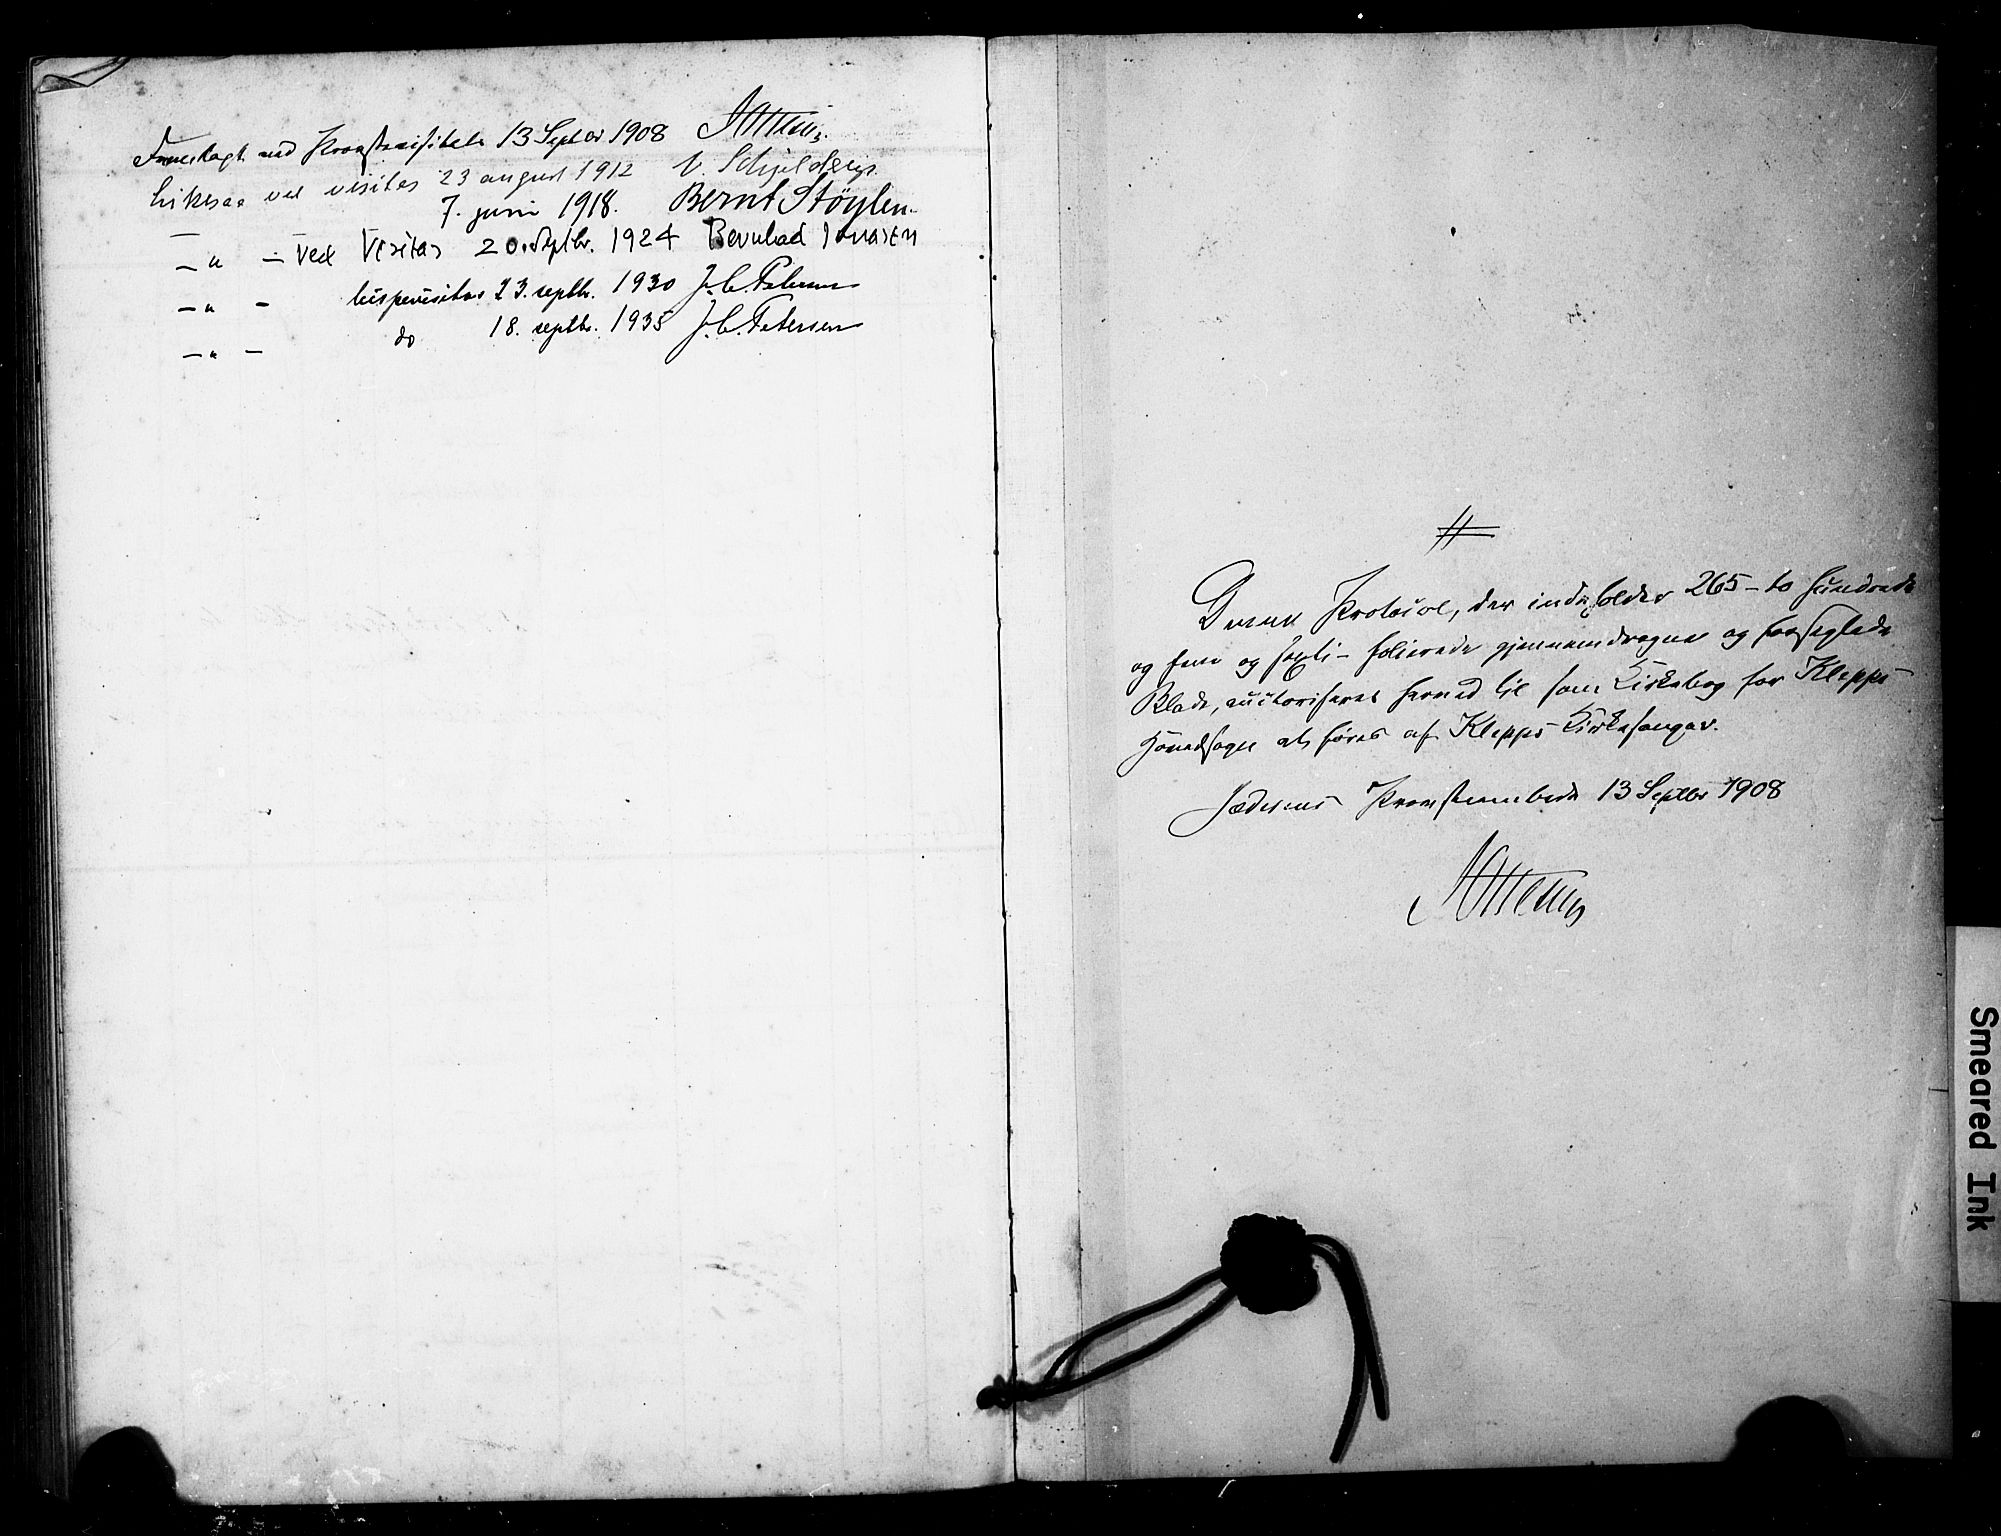 Foreslagt ved Provstevisitats 13 Septbr 1908
Likesaa ved visitas 23 august 1912 V. Schjelderup
7. juni 1918. Bernt Støylen
— " — ved Visitas 20. Septbr. 1924 Bernhad Jonasen
— " — bispevisitas 23. septbr. 1930 J. C. Petersen
— " — do 18. septbr. 1935 J. C. Petersen
Denne Protocol, der indeholder 265 – to hundrede
og fem og sexti – folierede gjennemdragne og forseglede
Blade, auctoriseres herved til som Kirkebog for Klepps
Hovedsogn at føres af Klepps Kirkesanger.
Jæderens Provsteembede 13 Septbr 1908
Smeared Ink